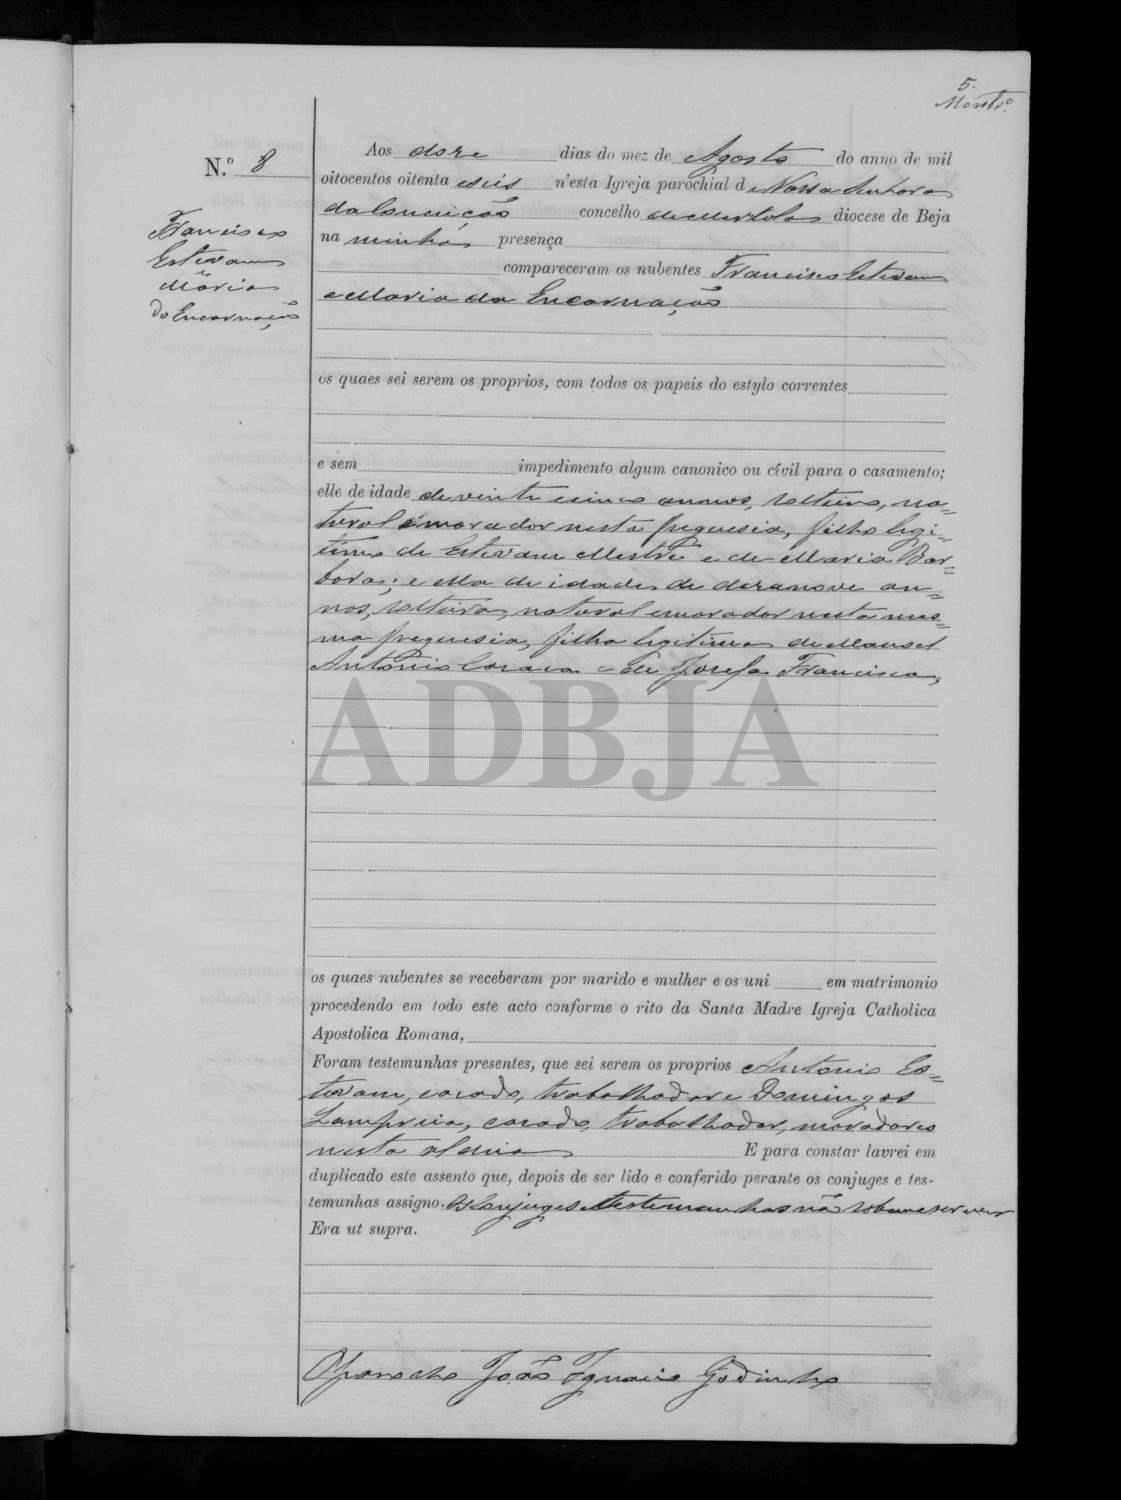 5.
N.º 8
Francisco
Estevam
e
Maria
da Encarnação
Aos doze dias do mez de Agosto do anno de mil
oitocentos oitenta e seis n'esta Igreja parochial d e Nossa Senhora
da Conceição concelho de Mertola diocese de Beja
na minha presença
compareceram os nubentes Francisco Estevam
e Maria da Encarnação
os quaes sei serem os proprios, com todos os papeis do estylo correntes
e sem impedimento algum canonico ou civil para o casamento;
elle de idade de vinte e cinco annos, solteiro, na=
tural e morador nesta freguesia, filho legi=
timo de Estevam Mestre e de Maria Bar=
bora; e ella de idade de dezanove an=
nos, solteira, natural e morador nesta mes=
ma freguesia, filha legitima de Manoel
Antonio Coraca e de Josefa Francisca,
ADBJA
os quaes nubentes se receberam por marido e mulher e os uni em matrimonio
procedendo em todo este acto conforme o rito da Santa Madre Igreja Catholica
Apostolica Romana,
Foram testemunhas presentes, que sei serem os proprios Antonio Es=
tevam, casado, trabalhador e Domingos
Lampreia, casado, trabalhador, moradores
nesta aldeia E para constar lavrei em
duplicado este assento que, depois de ser lido e conferido perante os conjuges e tes-
temunhas assigno. Os Conjuges e testemunhas não sabem escrever
Era ut supra.
O Parocho João Ignacio Godinho